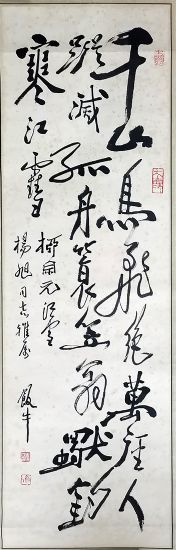 千山鳥飛絕萬徑人
蹤滅孤舟蓑笠翁獨釣
寒江雪
柳宗元江雪
楊旭同志雅屬
飯牛